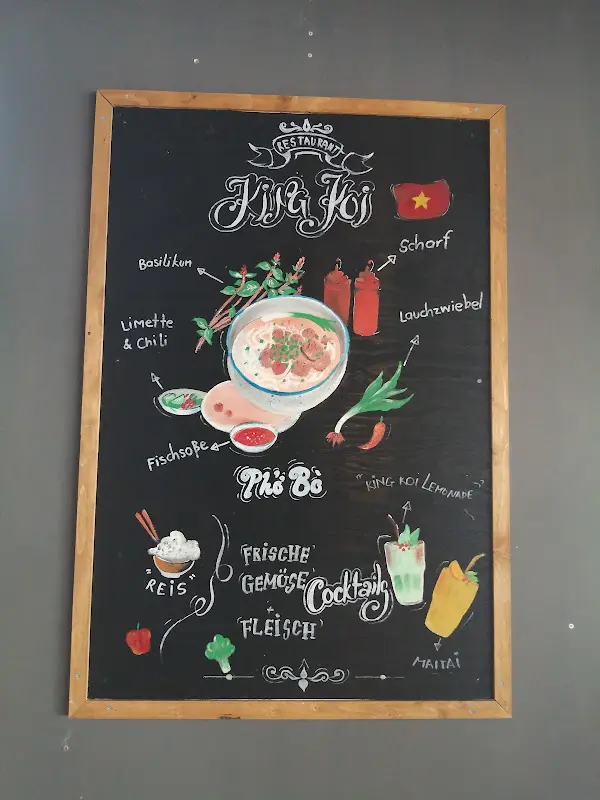 RESTAURANT
King Koi
Scharf
Basilikum
Lauchzwiebel
Limette
& Chili
Fischsoße
Phở Bò
"KING KOI LEMONADE"
FRISCHE
GEMÜSE
+
FLEISCH
Cocktails
"REIS"
MAITAI